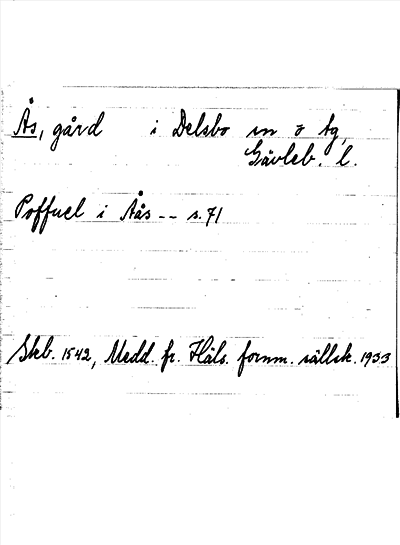 Ås, gård i Delsbo sn o tg,
Gävleb. l.
Poffuel i Aås -- s. 71
Skb. 1542, Medd. fr. Häls. fornm. sällsk. 1933